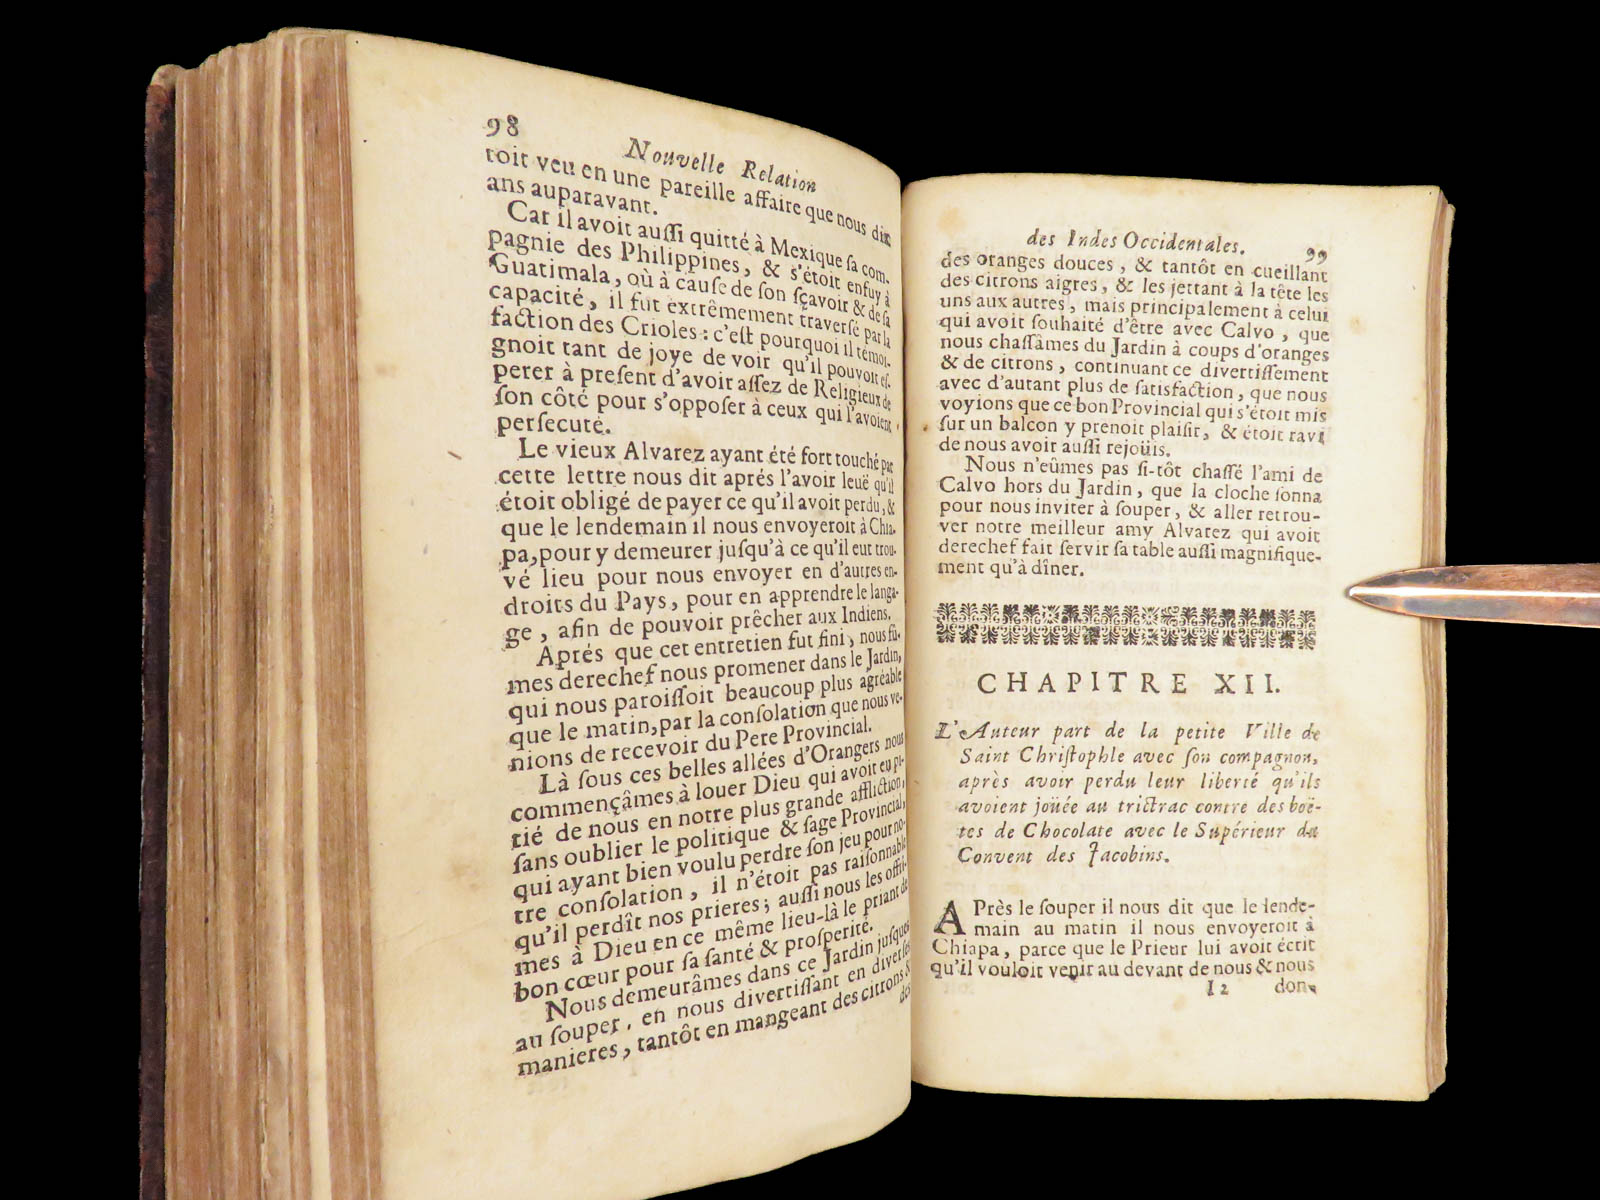 98
Nouvelle Relation
toit veu en une pareille affaire que nous dix
ans auparavant.
Car il avoit auſſi quitté à Mexique ſa com-
pagnie des Philippines, & s'étoit enfuy à
Guatimala, où à cauſe de ſon ſçavoir & de ſa
capacité, il fut extrêmement traverſé par la
faction des Crioles : c'eſt pourquoi il témoi-
gnoit tant de joye de voir qu'il pouvoit eſ-
perer à preſent d'avoir aſſez de Religieux de
ſon côté pour s'oppoſer à ceux qui l'avoient
perſecuté.
Le vieux Alvarez ayant été fort touché par
cette lettre nous dit aprés l'avoir leuë qu'il
étoit obligé de payer ce qu'il avoit perdu, &
que le lendemain il nous envoyeroit à Chia-
pa, pour y demeurer juſqu'à ce qu'il eut trou-
vé lieu pour nous envoyer en d'autres en-
droits du Pays, pour en apprendre le langa-
ge, afin de pouvoir prêcher aux Indiens.
Aprés que cet entretien fut fini, nous fû-
mes derechef nous promener dans le Jardin,
qui nous paroiſſoit beaucoup plus agréable
que le matin, par la conſolation que nous ve-
nions de recevoir du Pere Provincial.
Là ſous ces belles allées d'Orangers nous
commençâmes à louer Dieu qui avoit eu pi-
tié de nous en notre plus grande affliction,
ſans oublier le politique & ſage Provincial,
qui ayant bien voulu perdre ſon jeu pour no-
tre conſolation, il n'étoit pas raiſonnable
qu'il perdît nos prieres ; auſſi nous les offrî-
mes à Dieu en ce même lieu-là le priant de
bon cœur pour ſa ſanté & proſperité.
Nous demeurâmes dans ce Jardin juſques
au ſouper, en nous divertiſſant en diverſes
manieres, tantôt en mangeant des citrons &
des
des Indes Occidentales.
99
des oranges douces, & tantôt en cueillant
des citrons aigres, & les jettant à la tête les
uns aux autres, mais principalement à celui
qui avoit ſouhaité d'être avec Calvo, que
nous chaſſâmes du Jardin à coups d'oranges
& de citrons, continuant ce divertiſſement
avec d'autant plus de ſatisfaction, que nous
voyions que ce bon Provincial qui s'étoit mis
ſur un balcon y prenoit plaiſir, & étoit ravi
de nous avoir auſſi rejoüis.
Nous n'eûmes pas ſi-tôt chaſſé l'ami de
Calvo hors du Jardin, que la cloche ſonna
pour nous inviter à ſouper, & aller retrou-
ver notre meilleur amy Alvarez qui avoit
derechef fait ſervir ſa table auſſi magnifique-
ment qu'à dîner.
CHAPITRE XII.
L'Auteur part de la petite Ville de
Saint Chriſtophle avec ſon compagnon,
après avoir perdu leur liberté qu'ils
avoient joüée au trictrac contre des boë-
tes de Chocolate avec le Supérieur du
Convent des Jacobins.
APrès le ſouper il nous dit que le lende-
main au matin il nous envoyeroit à
Chiapa, parce que le Prieur lui avoit écrit
qu'il vouloit venir au devant de nous & nous
I 2
don-